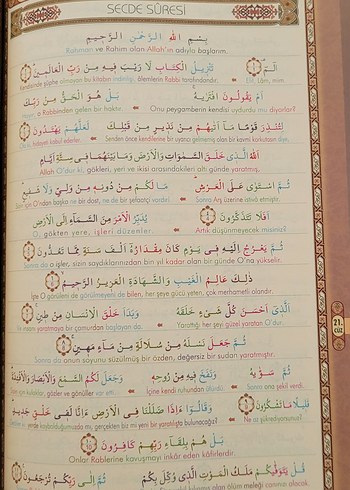 SECDE SÛRESİ
بِسْمِ اللهِ الرَّحْمٰنِ الرَّحِيمِ
Rahman ve Rahim olan Allah'ın adıyla başlarım.
الٓمٓ تَنْزِيلُ الْكِتَابِ لَا رَيْبَ فِيهِ مِنْ رَبِّ الْعَالَمِينَ
Elif, lâm, mim. Kendisinde şüphe olmayan bu kitabın indirilişi, âlemlerin Rabbi tarafındandır.
اَمْ يَقُولُونَ افْتَرٰيهُ بَلْ هُوَ الْحَقُّ مِنْ رَبِّكَ
Onu peygamberin kendisi uydurdu mu diyorlar? o Rabbinden gelen bir haktır.
لِتُنْذِرَ قَوْمًا مَٓا اَتٰيهُمْ مِنْ نَذِيرٍ مِنْ قَبْلِكَ لَعَلَّهُمْ يَهْتَدُونَ
Senden önce kendilerine bir uyarıcı gelmemiş olan bir kavmi korkutasın diye.
اَللهُ الَّذِي خَلَقَ السَّمٰوَاتِ وَالْاَرْضَ وَمَا بَيْنَهُمَا فِي سِتَّةِ اَيَّامٍ
Allah O'dur ki, gökleri, yeri ve ikisi arasındakileri altı günde yarattı.
ثُمَّ اسْتَوٰى عَلَى الْعَرْشِ مَا لَكُمْ مِنْ دُونِهِ مِنْ وَلِيٍّ وَلَا شَفِيعٍ
Sonra Arş üzerine istiva etmiştir. Sizin için O'ndan başka ne bir dost, ne de bir şefaatçi vardır.
اَفَلَا تَتَذَكَّرُونَ يُدَبِّرُ الْاَمْرَ مِنَ السَّمَٓاءِ اِلَى الْاَرْضِ
Artık düşünmeyecek misiniz? O, gökten yere, işleri düzenler.
ثُمَّ يَعْرُجُ اِلَيْهِ فِي يَوْمٍ كَانَ مِقْدَارُهُٓ اَلْفَ سَنَةٍ مِمَّا تَعُدُّونَ
Sonra da o işler, sizin saydıklarınızdan bin yıl kadar olan bir günde O'na yükselir.
ذٰلِكَ عَالِمُ الْغَيْبِ وَالشَّهَادَةِ الْعَزِيزُ الرَّحِيمُ
İşte O görüleni de görülmeyeni de bilen, her şeye gücü yeten, çok merhametli olandır.
اَلَّذِٓي اَحْسَنَ كُلَّ شَيْءٍ خَلَقَهُ وَبَدَاَ خَلْقَ الْاِنْسَانِ مِنْ طِينٍ
Yarattığı her şeyi güzel yaratan O'dur. insanı yaratmaya bir çamurdan başlayan da.
ثُمَّ جَعَلَ نَسْلَهُ مِنْ سُلَالَةٍ مِنْ مَٓاءٍ مَهِينٍ
Sonra da onun soyunu süzülmüş bir özden, değersiz bir sudan yaratmıştır.
ثُمَّ سَوّٰيهُ وَنَفَخَ فِيهِ مِنْ رُوحِهِ وَجَعَلَ لَكُمُ السَّمْعَ وَالْاَبْصَارَ وَالْاَفْئِدَةَ
Sonra ona şekil verdi. İçine kendi ruhundan üfürdü. gözler ve gönüller var etti.
قَلِيلًا مَا تَشْكُرُونَ وَقَالُٓوا ءَاِذَا ضَلَلْنَا فِي الْاَرْضِ ءَاِنَّا لَفِي خَلْقٍ جَدِيدٍ
Ne az şükrediyorsunuz! yerde kaybolduğumuzda mı, gerçekten biz mi yeni bir yaratılışta bulunacağız?
بَلْ هُمْ بِلِقَٓاءِ رَبِّهِمْ كَافِرُونَ
Onlar Rablerine kavuşmayı inkâr eden kâfirlerdir.
قُلْ يَتَوَفّٰيكُمْ مَلَكُ الْمَوْتِ الَّذِي وُكِّلَ بِكُمْ ثُمَّ اِلٰى رَبِّكُمْ تُرْجَعُونَ
21.
CÜZ